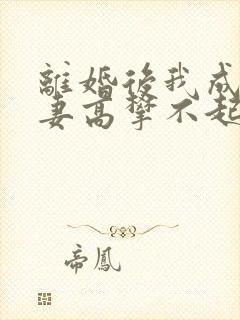 離婚後我成
妻高攀不起
帝鳳